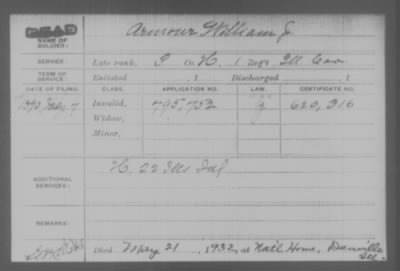 DEAD
NAME OF SOLDIER: Armour William J
SERVICE: Late rank, P Co. H, 1 Regt. Ill. Cav.
TERM OF SERVICE: Enlisted , 1 Discharged , 1
DATE OF FILING. CLASS. APPLICATION NO. LAW. CERTIFICATE NO.
1890 July 7 Invalid, 795,752 620,316
Widow,
Minor,
ADDITIONAL SERVICES: H, 22 Ills Inf
REMARKS:
Died May 21, 1932, at Natl Home, Danville Ill.